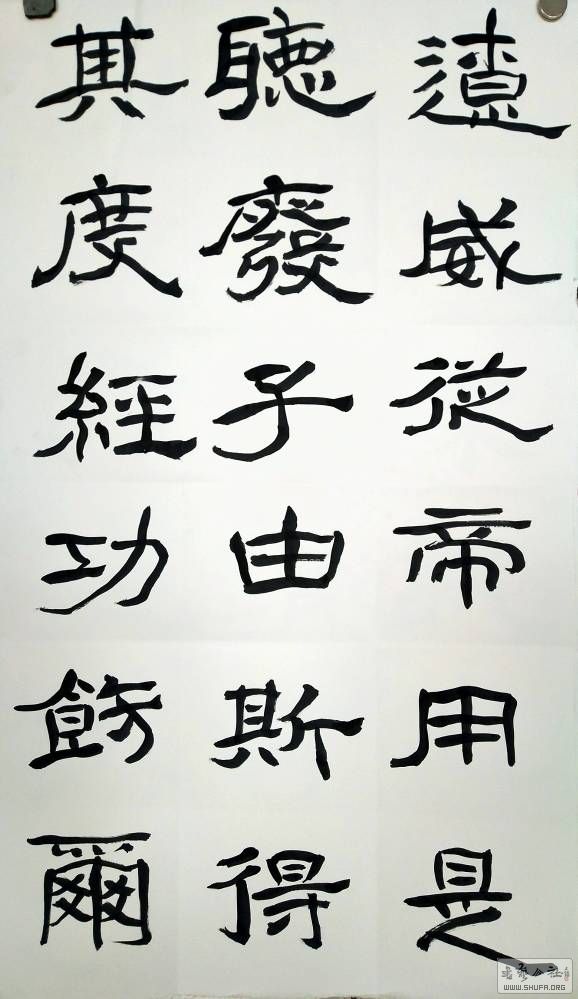 遼咸從帝用是
聽廢子由斯得
其度經功飭爾
書法公社
WWW.SHUFA.ORG